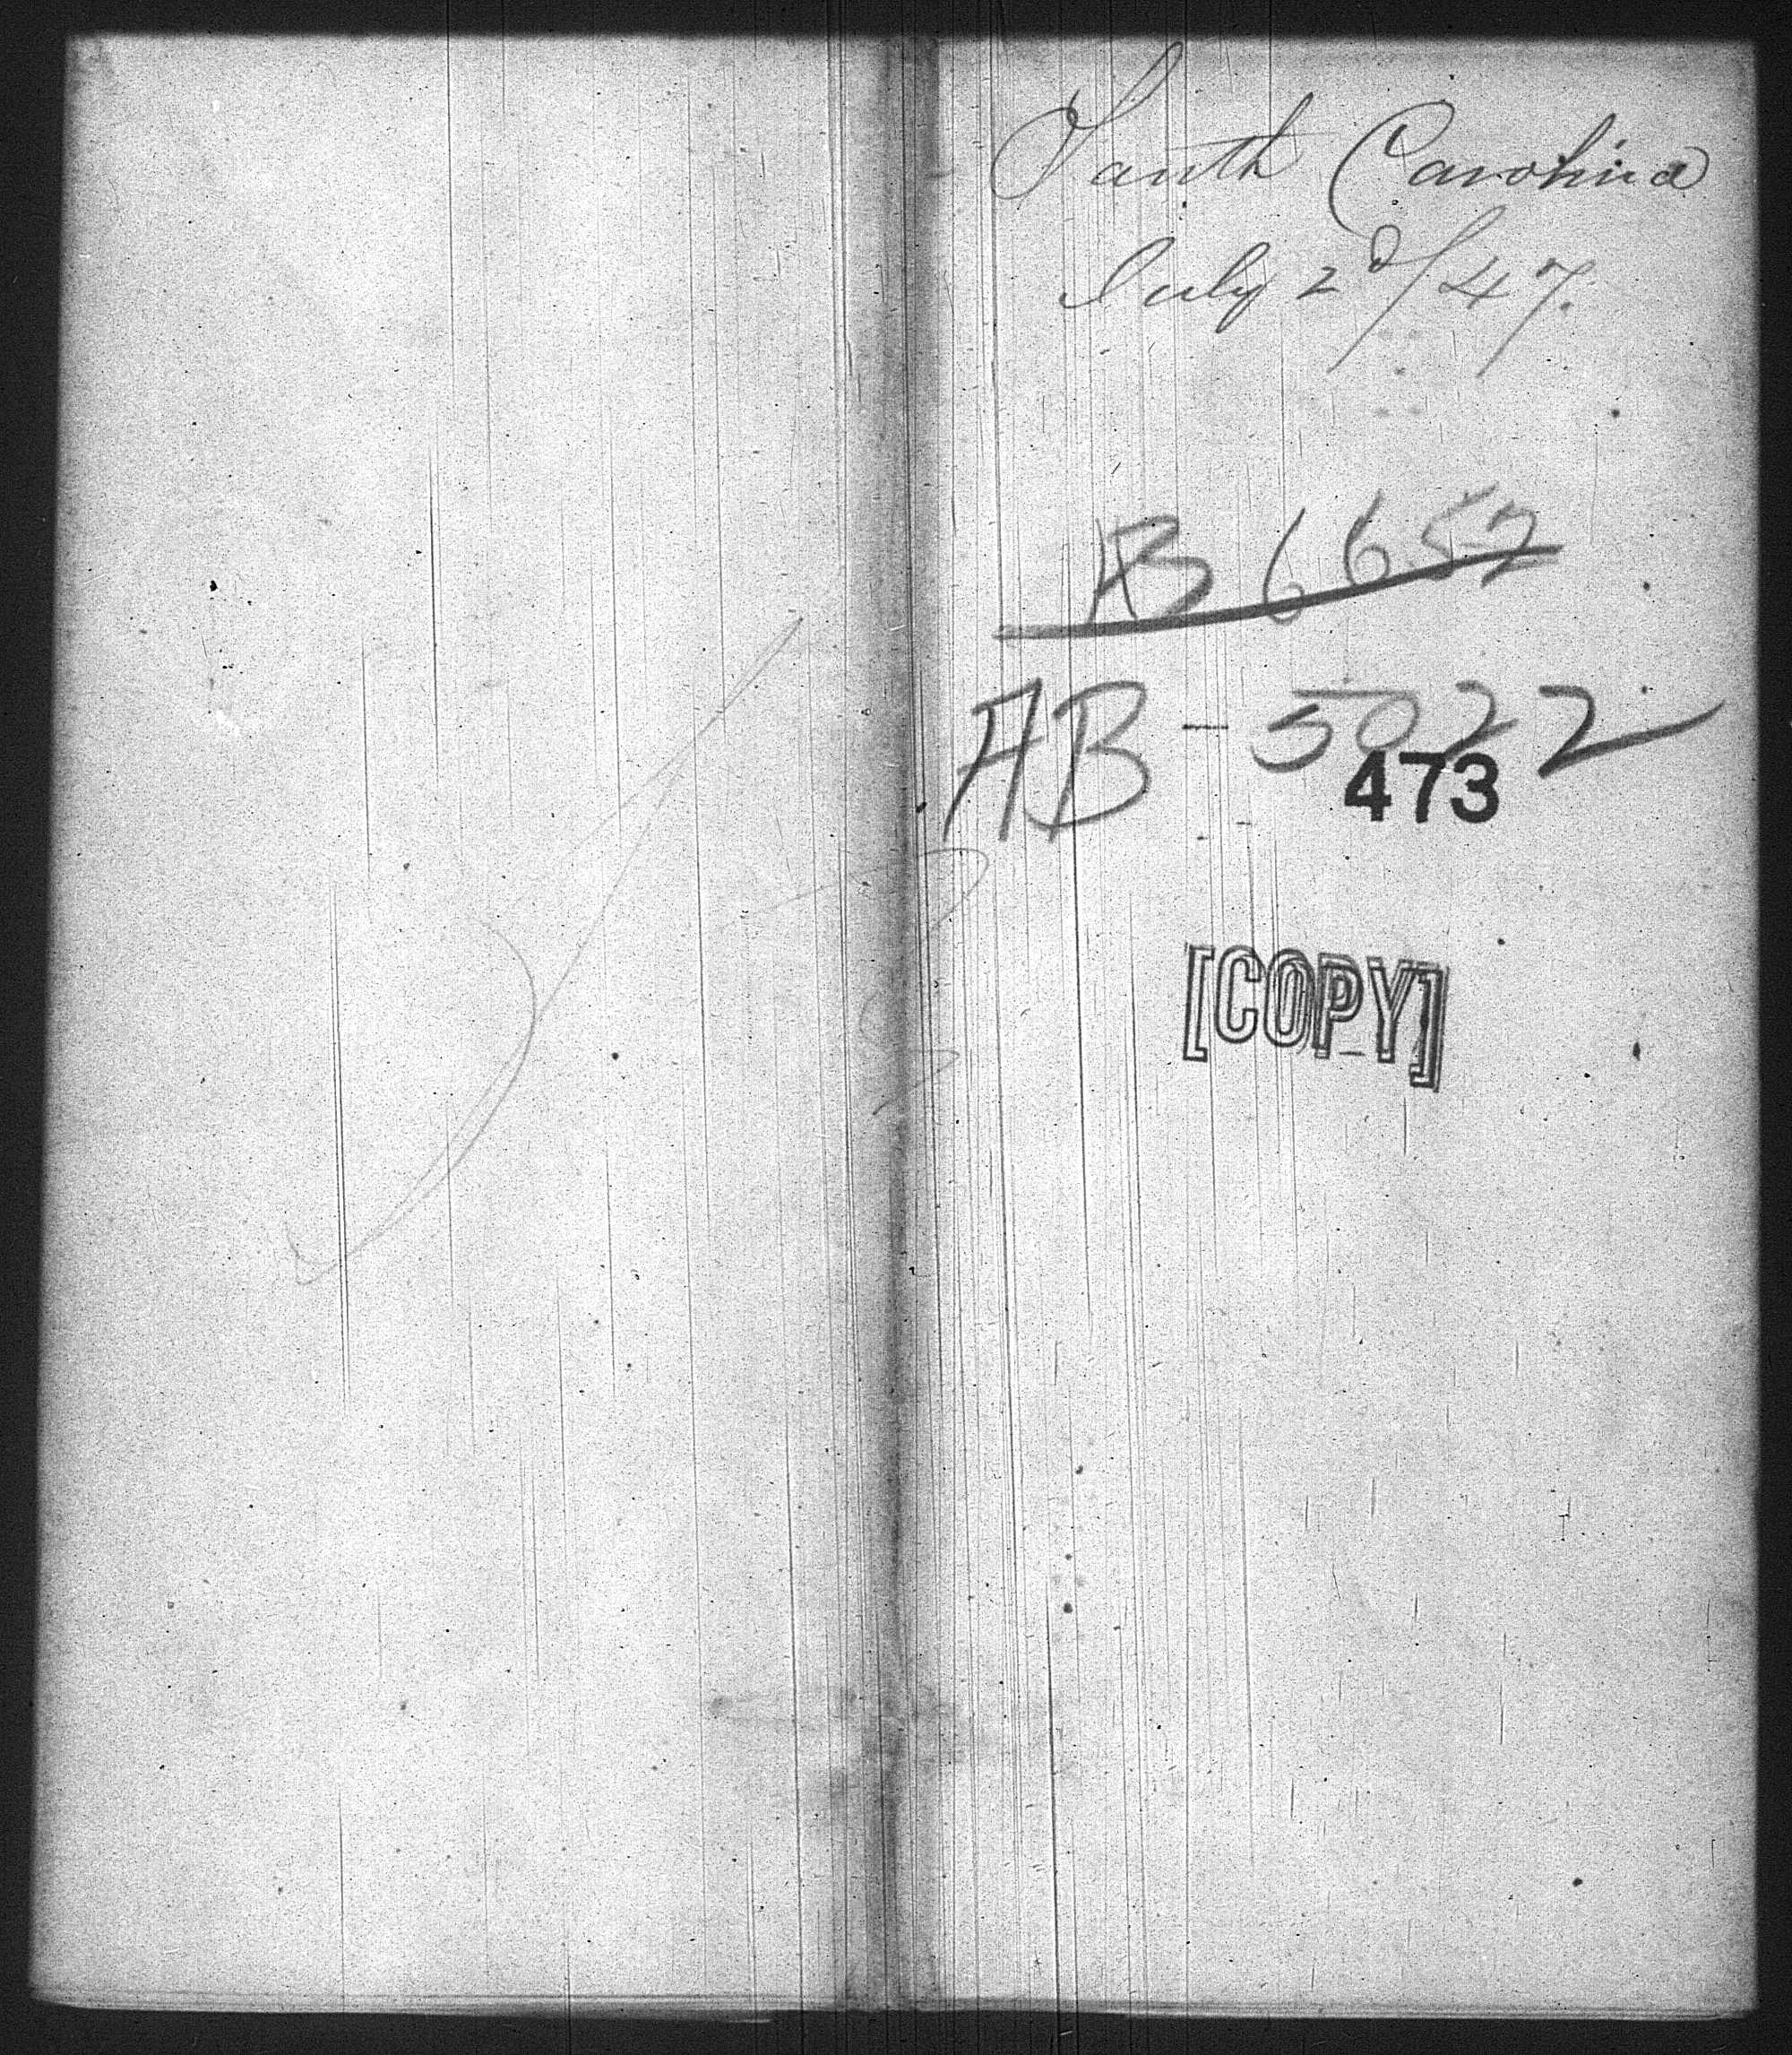 South Carolina
July 2d/47.
AB 6652
AB - 5022
473
[COPY]